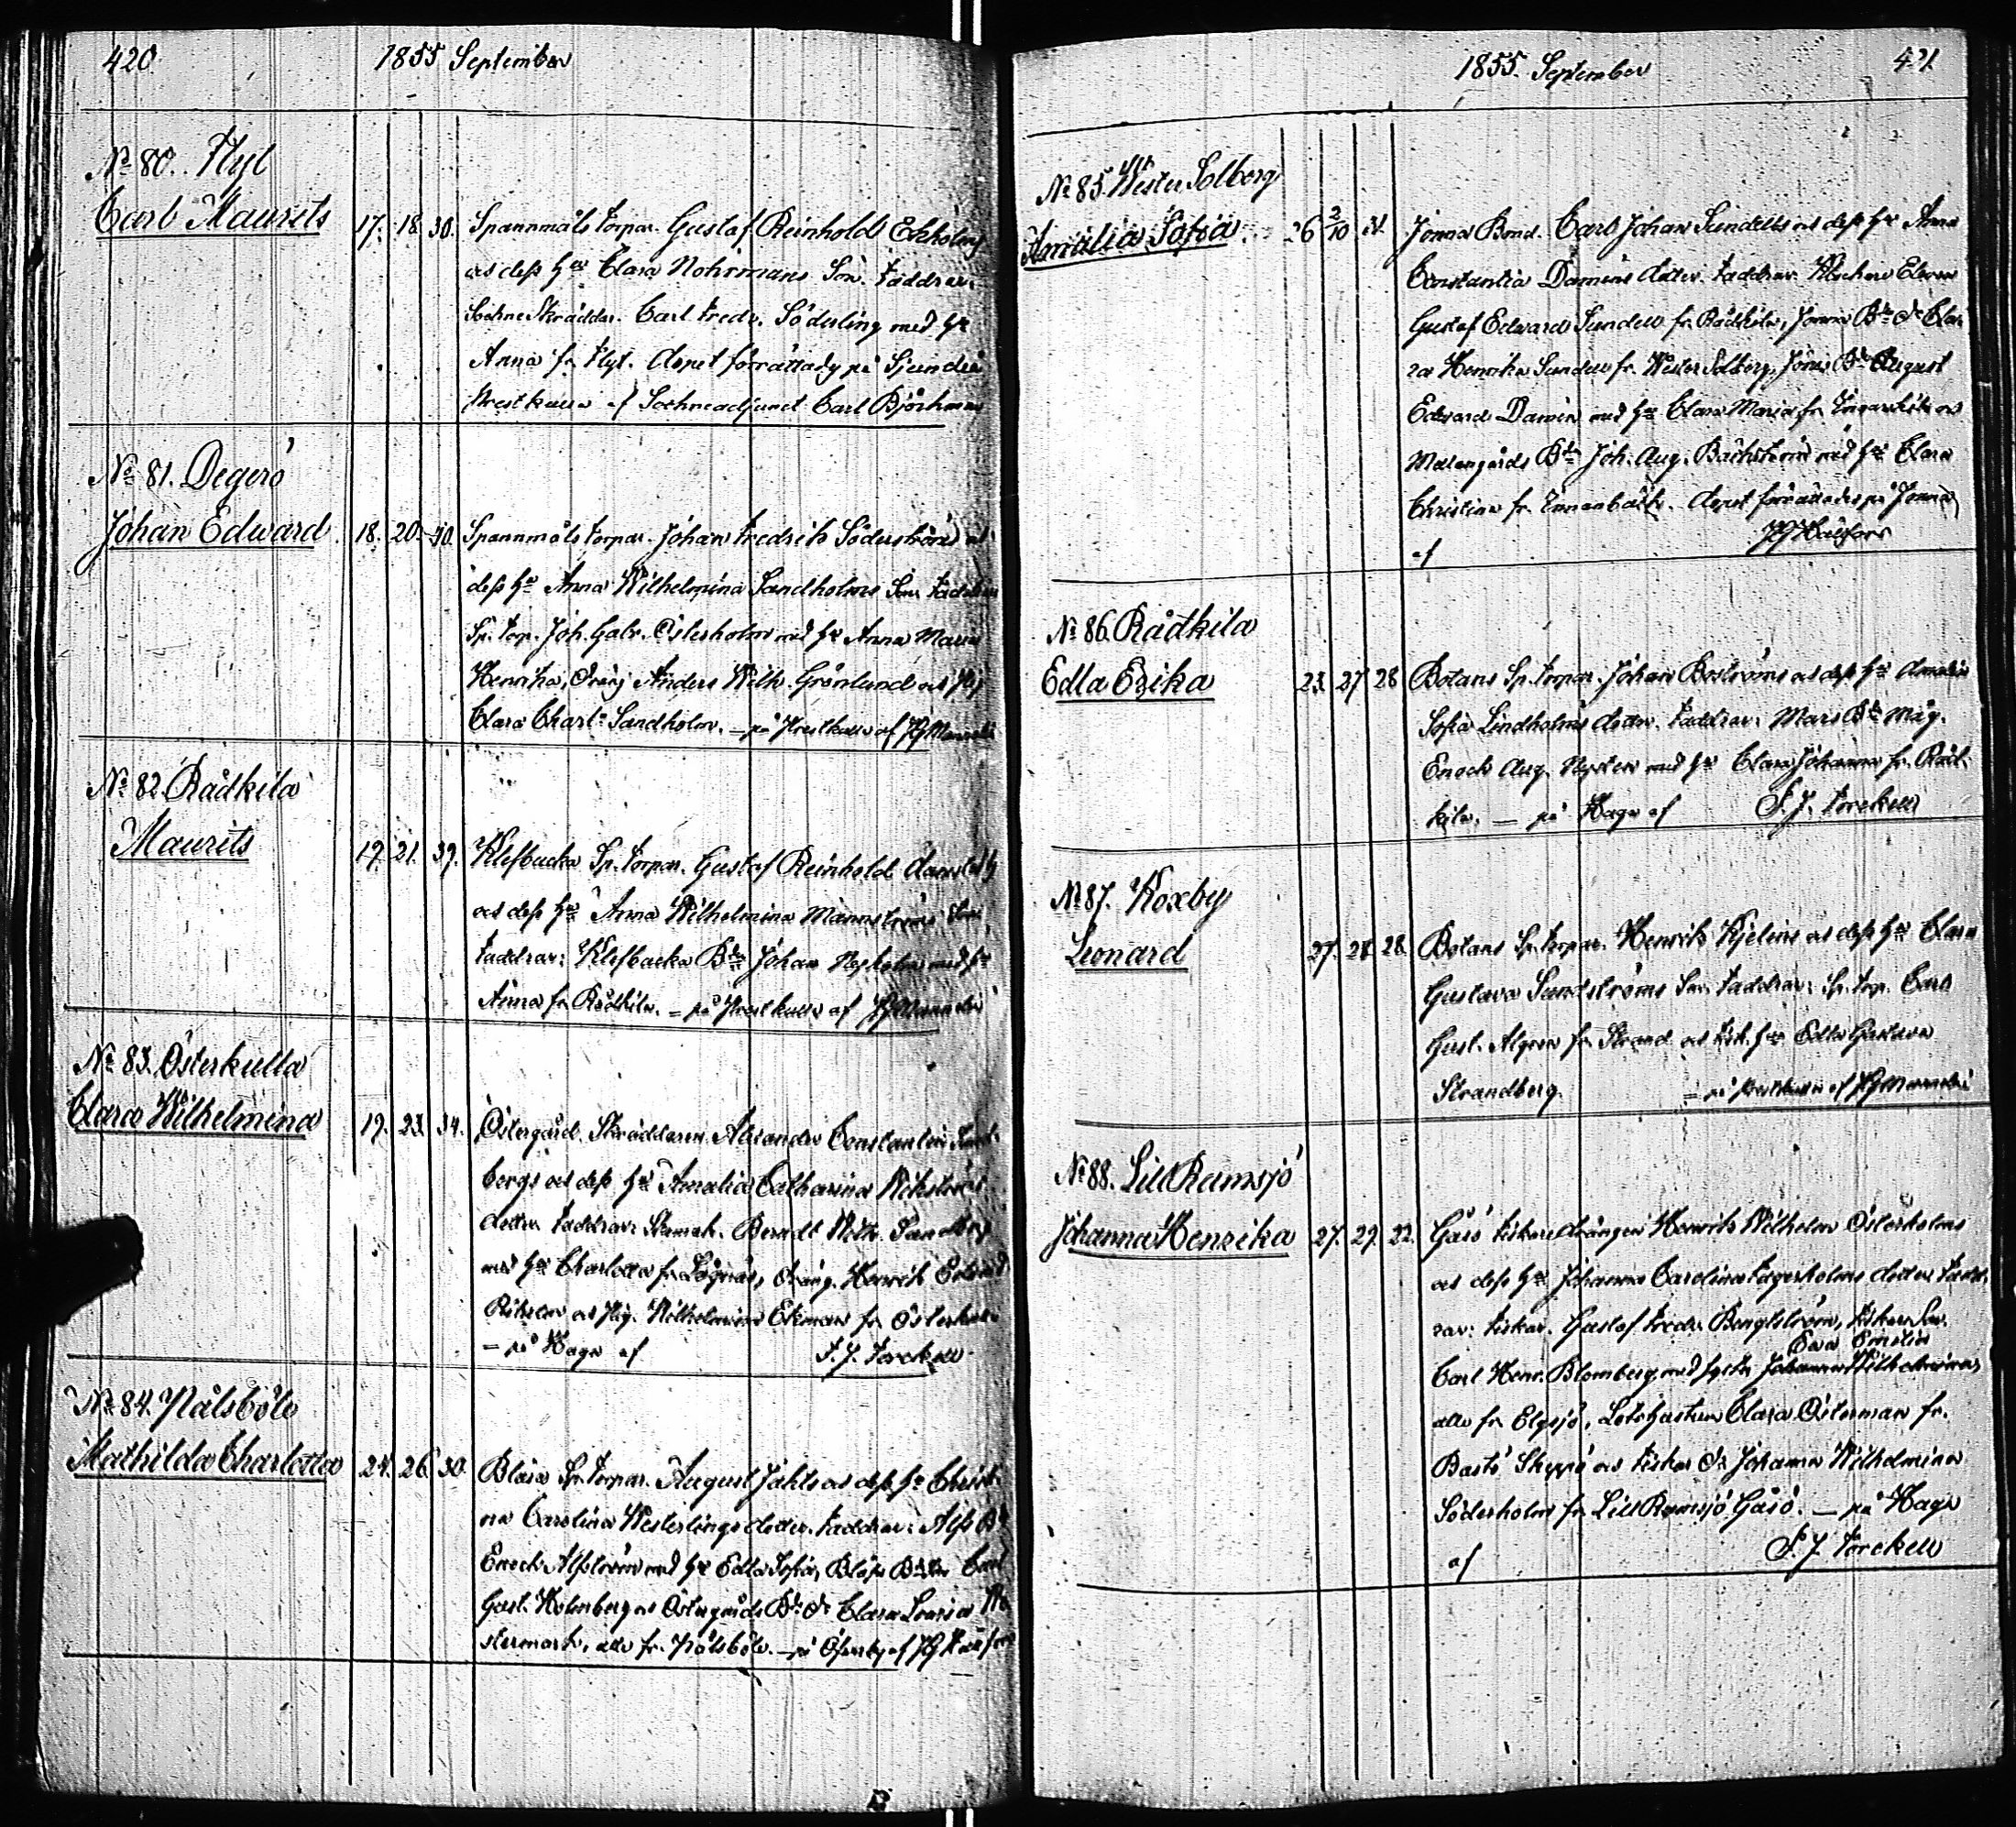 420. 1855 September
No 80. Flyt
Carl Maurits 17. 18. 30. Spannmåls torpar. Gustaf Reinhold Ekholms
och dess Hu Clara Nohrmans Son. Faddrar:
Sockne Skräddar. Carl Fredr. Söderling med Hu
Anna fr. Flyt. Dopet förrättady på Sjundeå
Prestkulla af Sockneadjunct Carl Björkman
No 81. Degerö
Johan Edward. 18. 20. 40. Spannmåls torpar. Johan Fredrik Söderströms och
dess Hu Anna Wilhelmina Sandholms Son. Faddrar
Sp. Torp. Joh. Gabr. Österholm med Hu Anna Maria
Henrika, Dräng Anders Wilh. Grönlund och Pig
Clara Charl. Sandholm. — på Prestkulla af
No 82. Rådkila
Maurits 19. 21. 39. Klefbacka Sp. torpar. Gustaf Reinhold
och dess Hu Anna Wilhelmina Mannströms Son
Faddrar: Klefbacka Bd Johan med Hu
Anna fr. Rådkila. — på Prestkulla af
No 83. Österkulla
Clara Wilhelmina 19. 23. 34. Östergård. Skräddaren Alexander Constantin
bergs och dess Hu Amalia Catharina
dotter. Faddrar: Skomak. Berndt Wilh. Sandberg
med Hu Charlotta fr. Lögnäs, Dräng. Henrik
och Pig. Wilhelmina Ekman fr. Österkulla
— på Haga af F. J. Forckell
No 84. Pålsböle
Mathilda Charlotta 24. 26. 30. Bläsa Sp. torpar. August Jahls och dess Hu Christi
na Carolina Westerlings dotter. Faddrar: Alfs Bd
Enoch Alfström med Hu Edla Sofia, Bläsa Bd Son Carl
Gust. Holmberg och Östergårds Bd Dr Clara Lovisa We
stermark, alla fr. Pålsböle. — på Öfverby af
1855. September 421.
No 85. Wester Solberg
Amalia Sofia. 26 2/10 31. Jonna Bond. Carl Johan Sundells och dess Hu Anna
Constantia Damens dotter. Faddrar: Eleven
Gustaf Edward Sundell fr. Rådkila, Jonna Bd Dr Cla
ra Henrika Sundell fr. Wester Solberg, Jönes Bd August
Edward Damén med Hu Clara Maria fr. Ingarskila och
Mellangårds Bd Joh. Aug. Bäckström med Hu Clara
Christina fr. Innanbäck. Dopet förrättades på Jonna
af
No 86. Rådkila
Edla Erika 23. 27. 28 Botans Sp. torpar. Johan Boströms och dess Hu Amalia
Sofia Lindholms dotter. Faddrar: Mars Bd Måg.
Enoch Aug. med Hu Clara Johanna fr. Råd-
kila. — på Haga af F. J. Forckell
No 87. Koxby
Leonard 27. 28. 28. Botans Sp. torpar. Henrik Kjelins och dess Hu Clara
Gustava Sundströms Son. Faddrar: Sp. torp. Carl
Gust. Algren fr. Strand och Hu Edla Gustava
Strandberg. — på Prestkulla af
No 88. Lill Ramsjö
Johanna Henrika 27. 29. 22. Gåsö Fiskare drängen Henrik Wilhelm Österholms
och dess Hu Johanna Carolina Fagerholms dotter. Fadd-
rar: Fiskar. Gustaf Fredr. Bengtström, Fiskare Son.
Eva Emilia
Carl Henr. Blomberg med syster Johanna Wilhelmina,
alla fr. Elgsjö, Lotshustrun Clara Österman fr.
Bastö Skyxö och Fiskar Dr Johanna Wilhelmina
Söderholm fr. Lill Ramsjö Gåsö. — på Haga
af F. J. Forckell